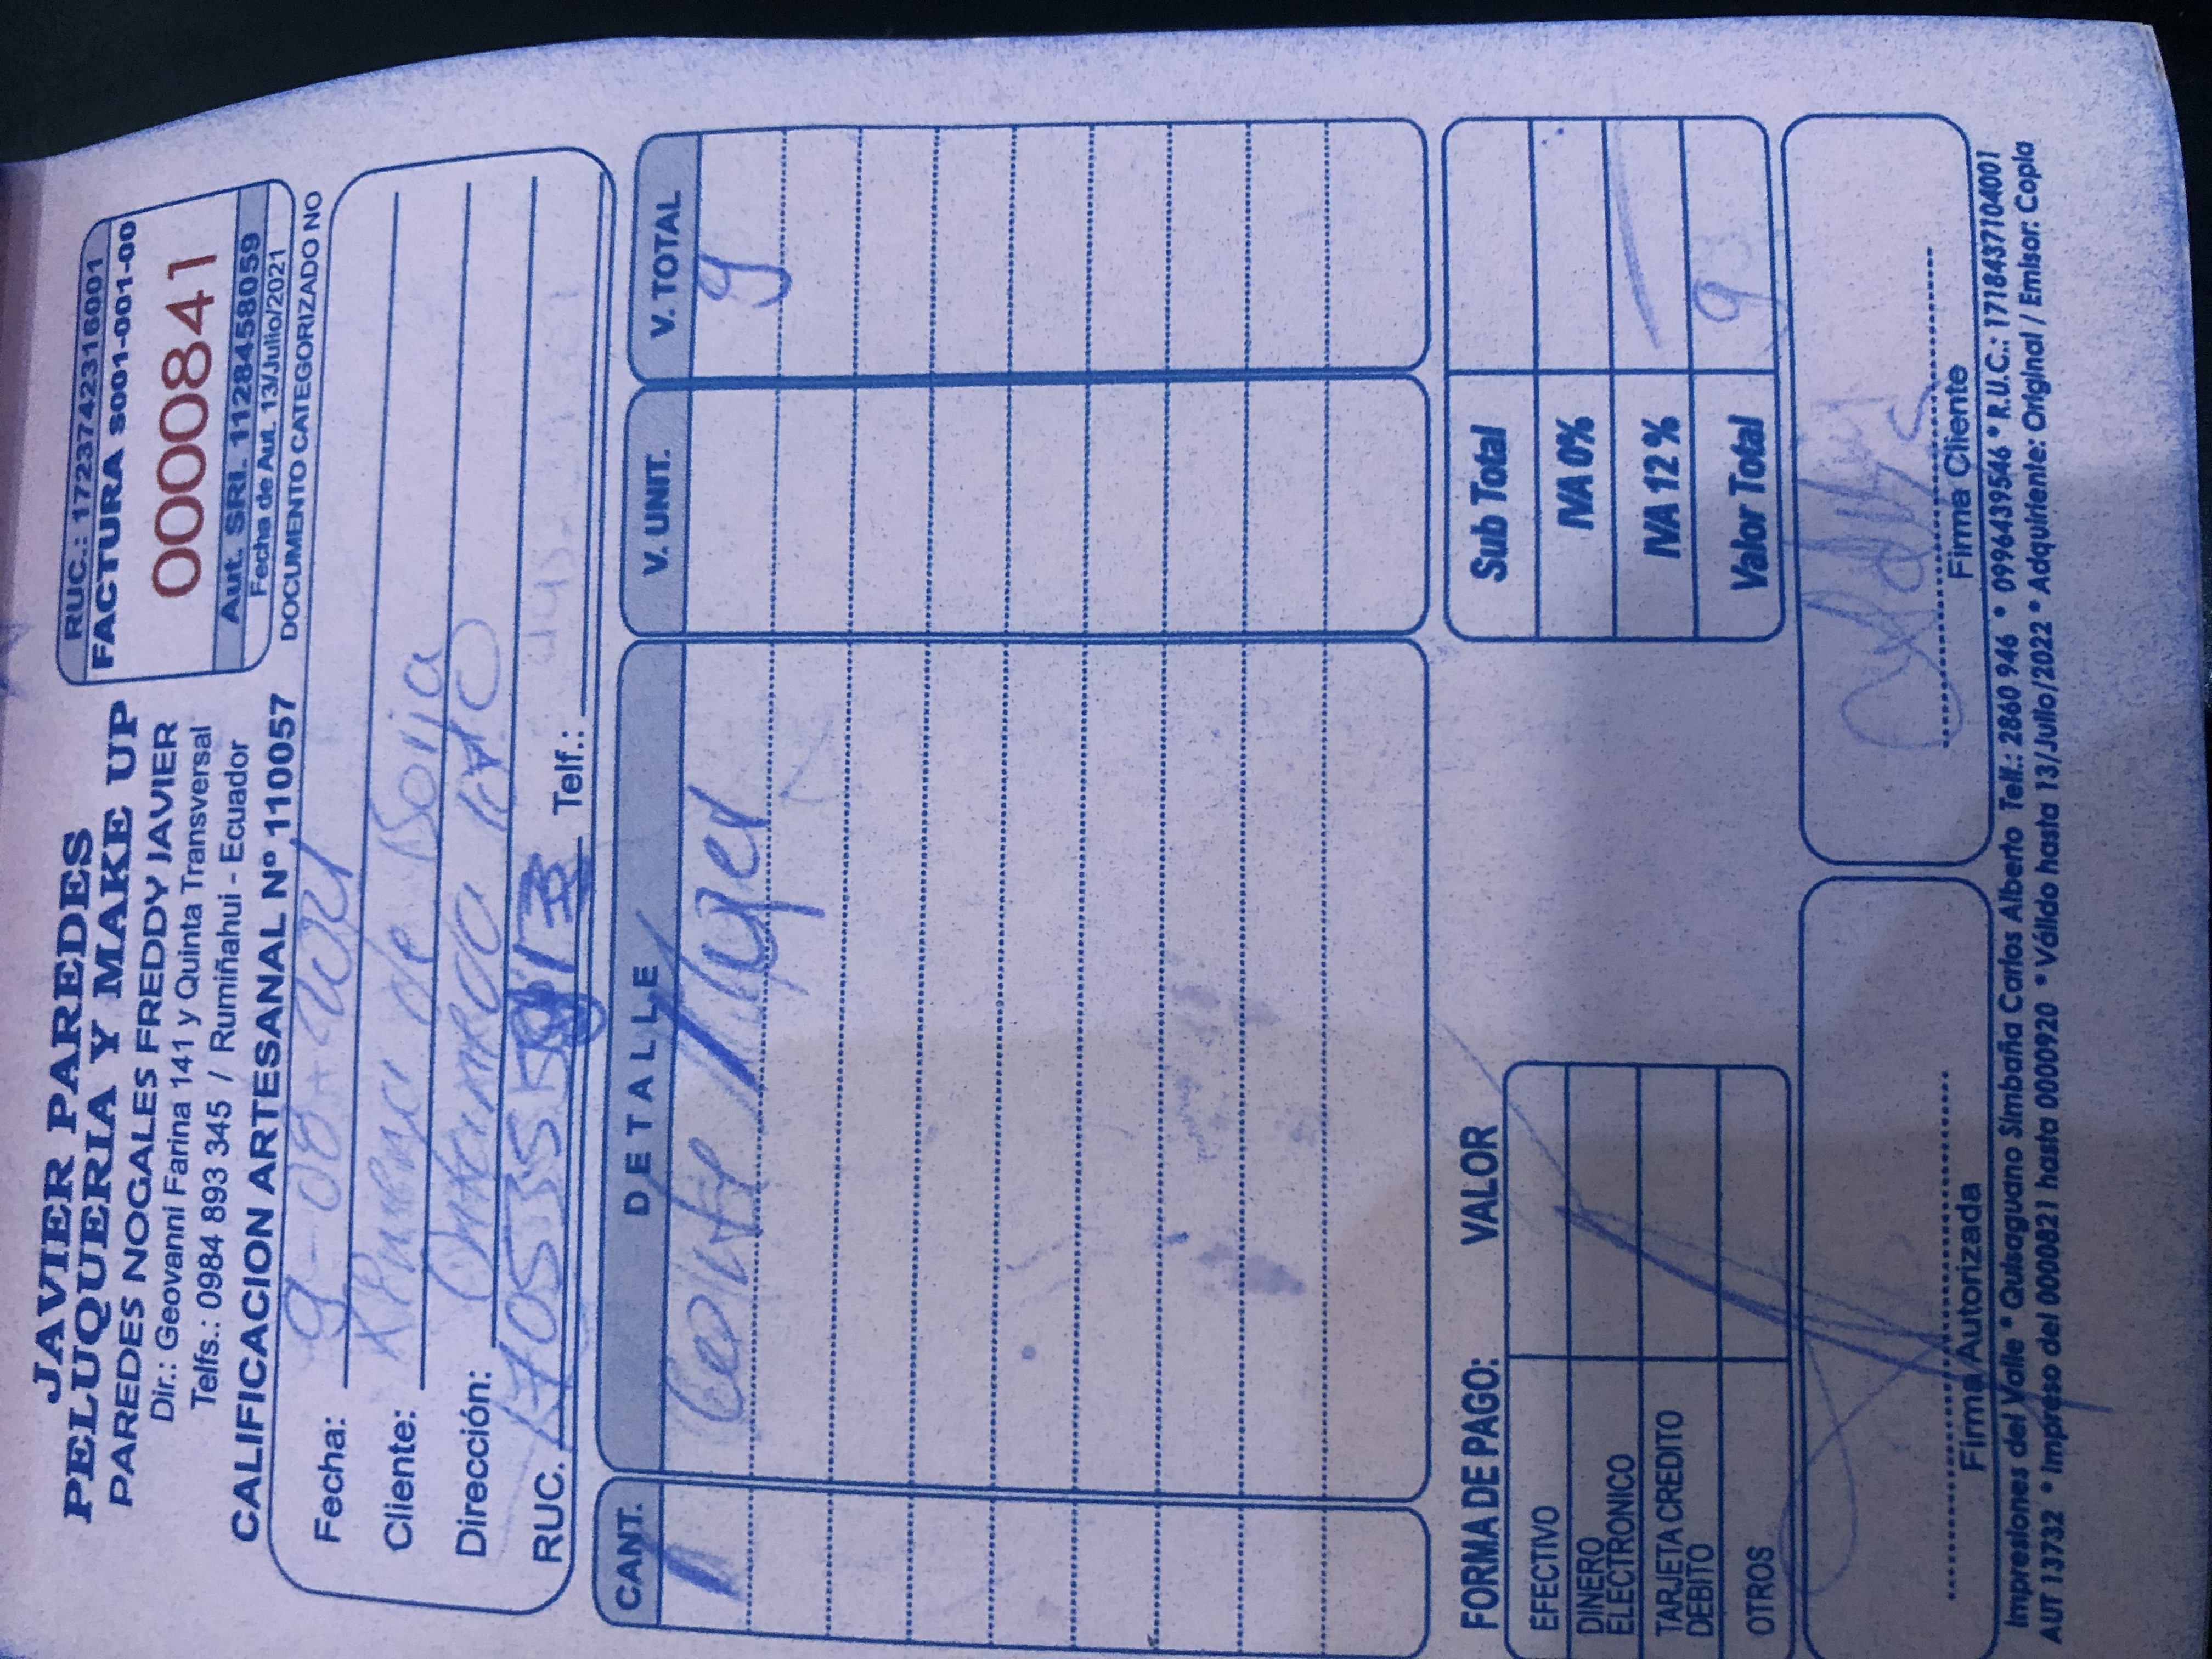 JAVIER PAREDES
PELUQUERIA Y MAKE UP
PAREDES NOGALES FREDDY JAVIER
Dir.: Geovanni Farina 141 y Quinta Transversal
Telfs.: 0984 893 345 / Rumiñahui - Ecuador
CALIFICACION ARTESANAL Nº 110057
RUC.: 1723742316001
FACTURA S001-001-00
0000841
Aut. SRI. 1128458059
Fecha de Aut. 13/Julio/2021
DOCUMENTO CATEGORIZADO NO
Fecha: 9-08-2021
Cliente: Ximena de Borja
Dirección: Ontaneda
RUC. Telf.:
CANT. DETALLE V. UNIT. V. TOTAL
1 Corte Mujer 9
FORMA DE PAGO: VALOR
EFECTIVO
DINERO
ELECTRONICO
TARJETA CREDITO
DEBITO
OTROS
Sub Total
IVA 0%
IVA 12 %
Valor Total 9
Firma Autorizada
Firma Cliente
Impresiones del Valle * Quisaguano Simbaña Carlos Alberto Telf.: 2860 946 * 0996439546 * R.U.C.: 1718437104001
AUT 13732 * Impreso del 0000821 hasta 0000920 * Válido hasta 13/Julio/2022 * Adquiriente: Original / Emisor: Copia